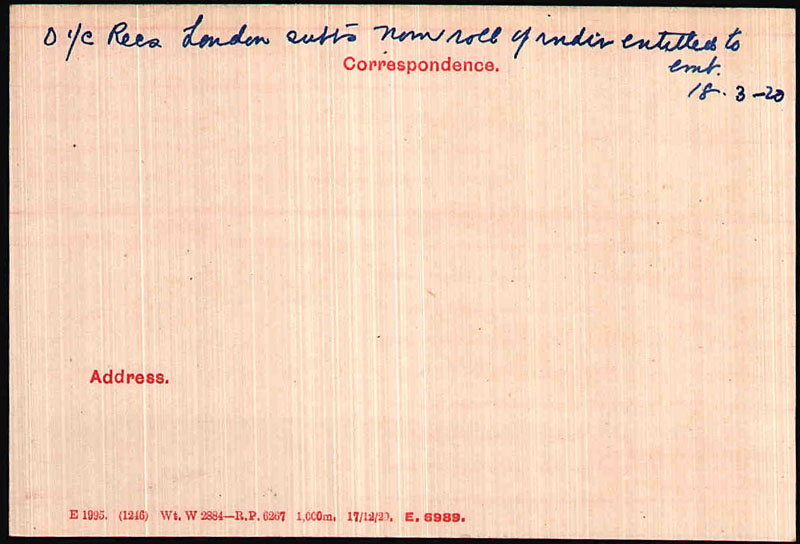 O i/c Recs London subts Nom roll of indiv entitled to
Correspondence.
emb.
18. 3 - 20
Address.
E 1995. (1246) Wt. W 2884—R.P. 6267 1,000m. 17/12/20. E. 8989.